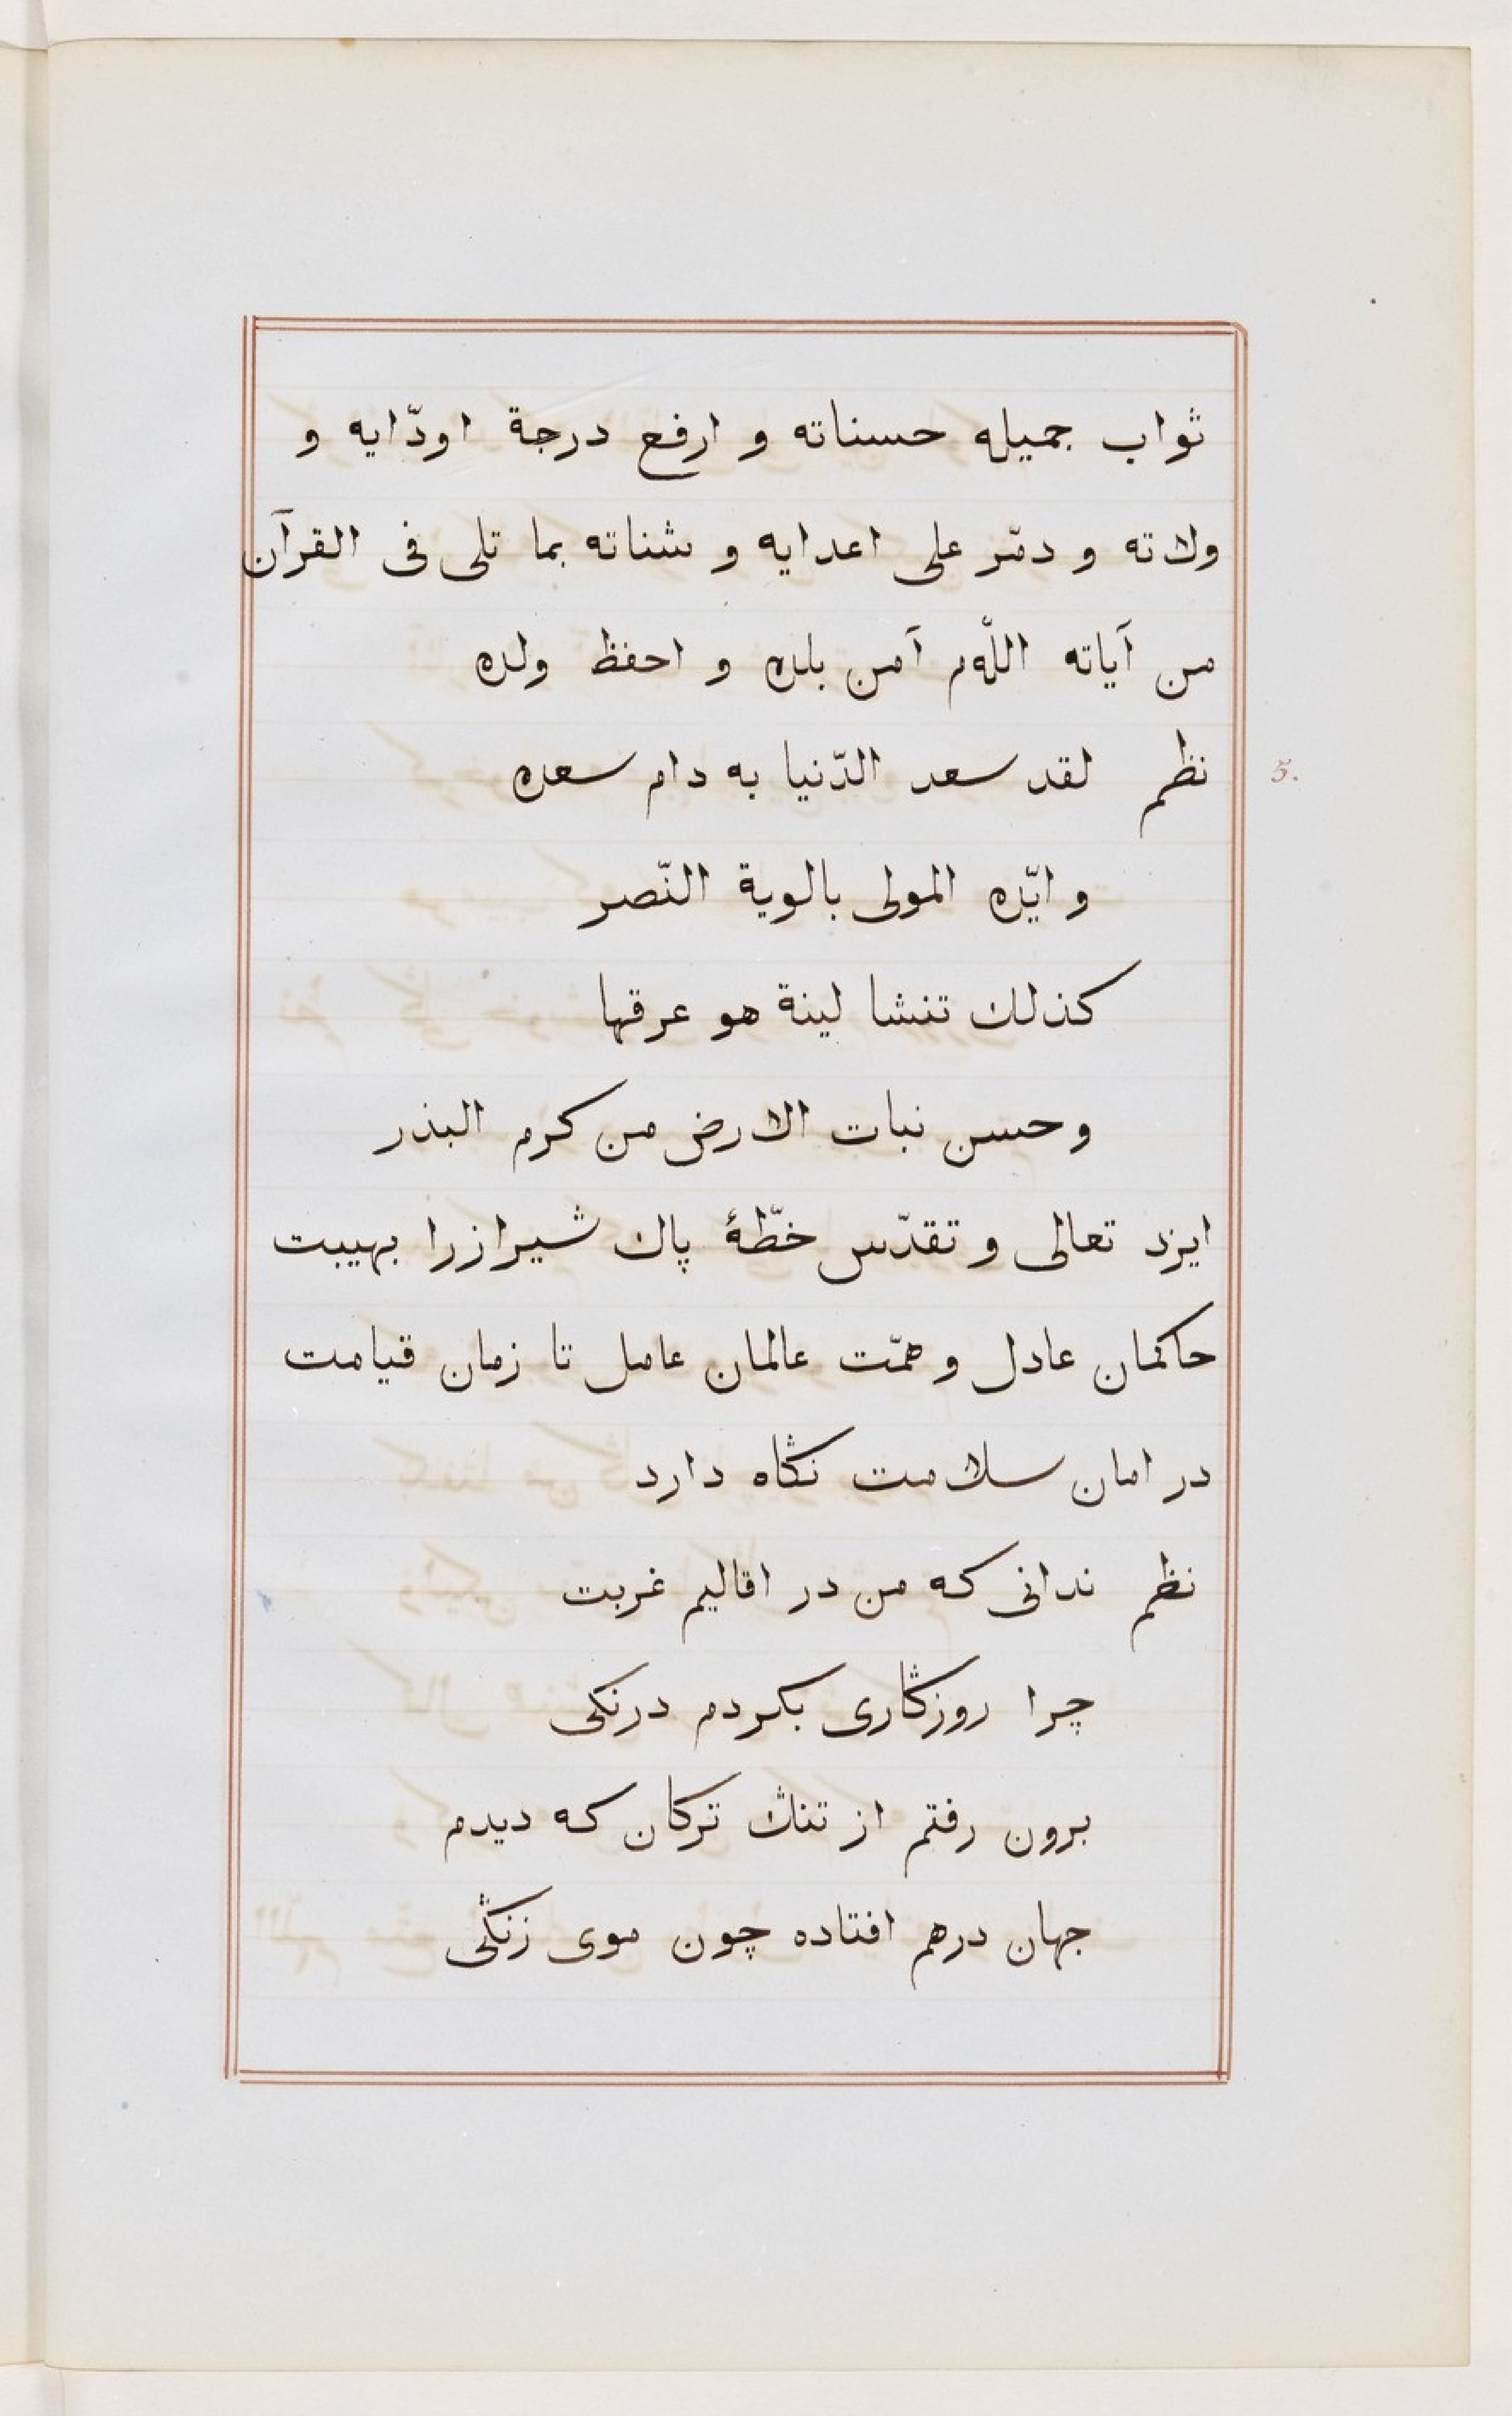 ثواب جميله حسناته و ارفع درجة اودّايه و
ولاته و دمّر على اعدايه و شناته بما تلى فى القرآن
من آياته اللّهم آمن بلده و احفظ ولده
نظم لقد سعد الدّنيا به دام سعده
5.
و ايّده المولى بالوية النّصر
كذلك تنشا لينة هو عرقها
و حسن نبات الارض من كرم البذر
ايزد تعالى و تقدّس خطّهٔ پاك شيراز را بهيبت
حاكمان عادل و همّت عالمان عامل تا زمان قيامت
در امان سلامت نڭاه دارد
نظم ندانى كه من در اقاليم غربت
چرا روزڭارى بكردم درنكى
برون رفتم از تنڭ تركان كه ديدم
جهان درهم افتاده چون موى زنڭى